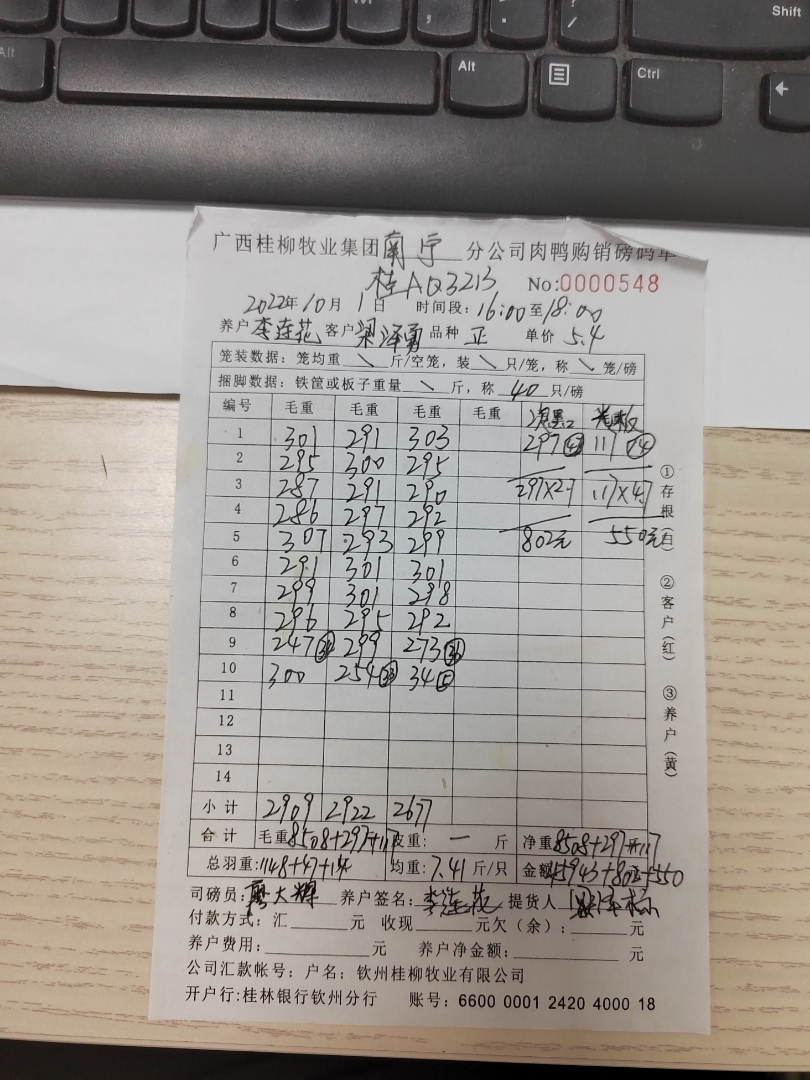 Shift
Alt
Alt
Ctrl
广西桂柳牧业集团南宁分公司肉鸭购销磅码单
桂AQ3213 No:0000548
2022年10月1日 时间段:16:00至18:00
养户李连花 客户梁泽勇 品种 正 单价 5.4
笼装数据:笼均重 \ 斤/空笼,装 \ 只/笼,称 \ 笼/磅
捆脚数据:铁筐或板子重量 \ 斤,称 40 只/磅
编号 毛重 毛重 毛重 毛重 光板
1 301 291 303 297 117
2 295 300 295
3 287 291 290 297×2.7 117×4.7
4 286 297 292
5 307 293 299 802元 550元
6 291 301 301
7 299 301 298
8 296 295 292
9 247 299 273 36
10 300 254 34
11
12
13
14
小计 2909 2922 2677
合计 毛重8508+297+117 皮重: — 斤 净重8508+297+117
总羽重:1148+47+14 均重:7.41斤/只 金额45943+802+550
司磅员:廖大辉 养户签名:李连花 提货人
付款方式:汇 元 收现 元欠(余): 元
养户费用: 元 养户净金额: 元
公司汇款帐号:户名:钦州桂柳牧业有限公司
开户行:桂林银行钦州分行 账号:6600 0001 2420 4000 18
①存根(白) ②客户(红) ③养户(黄)